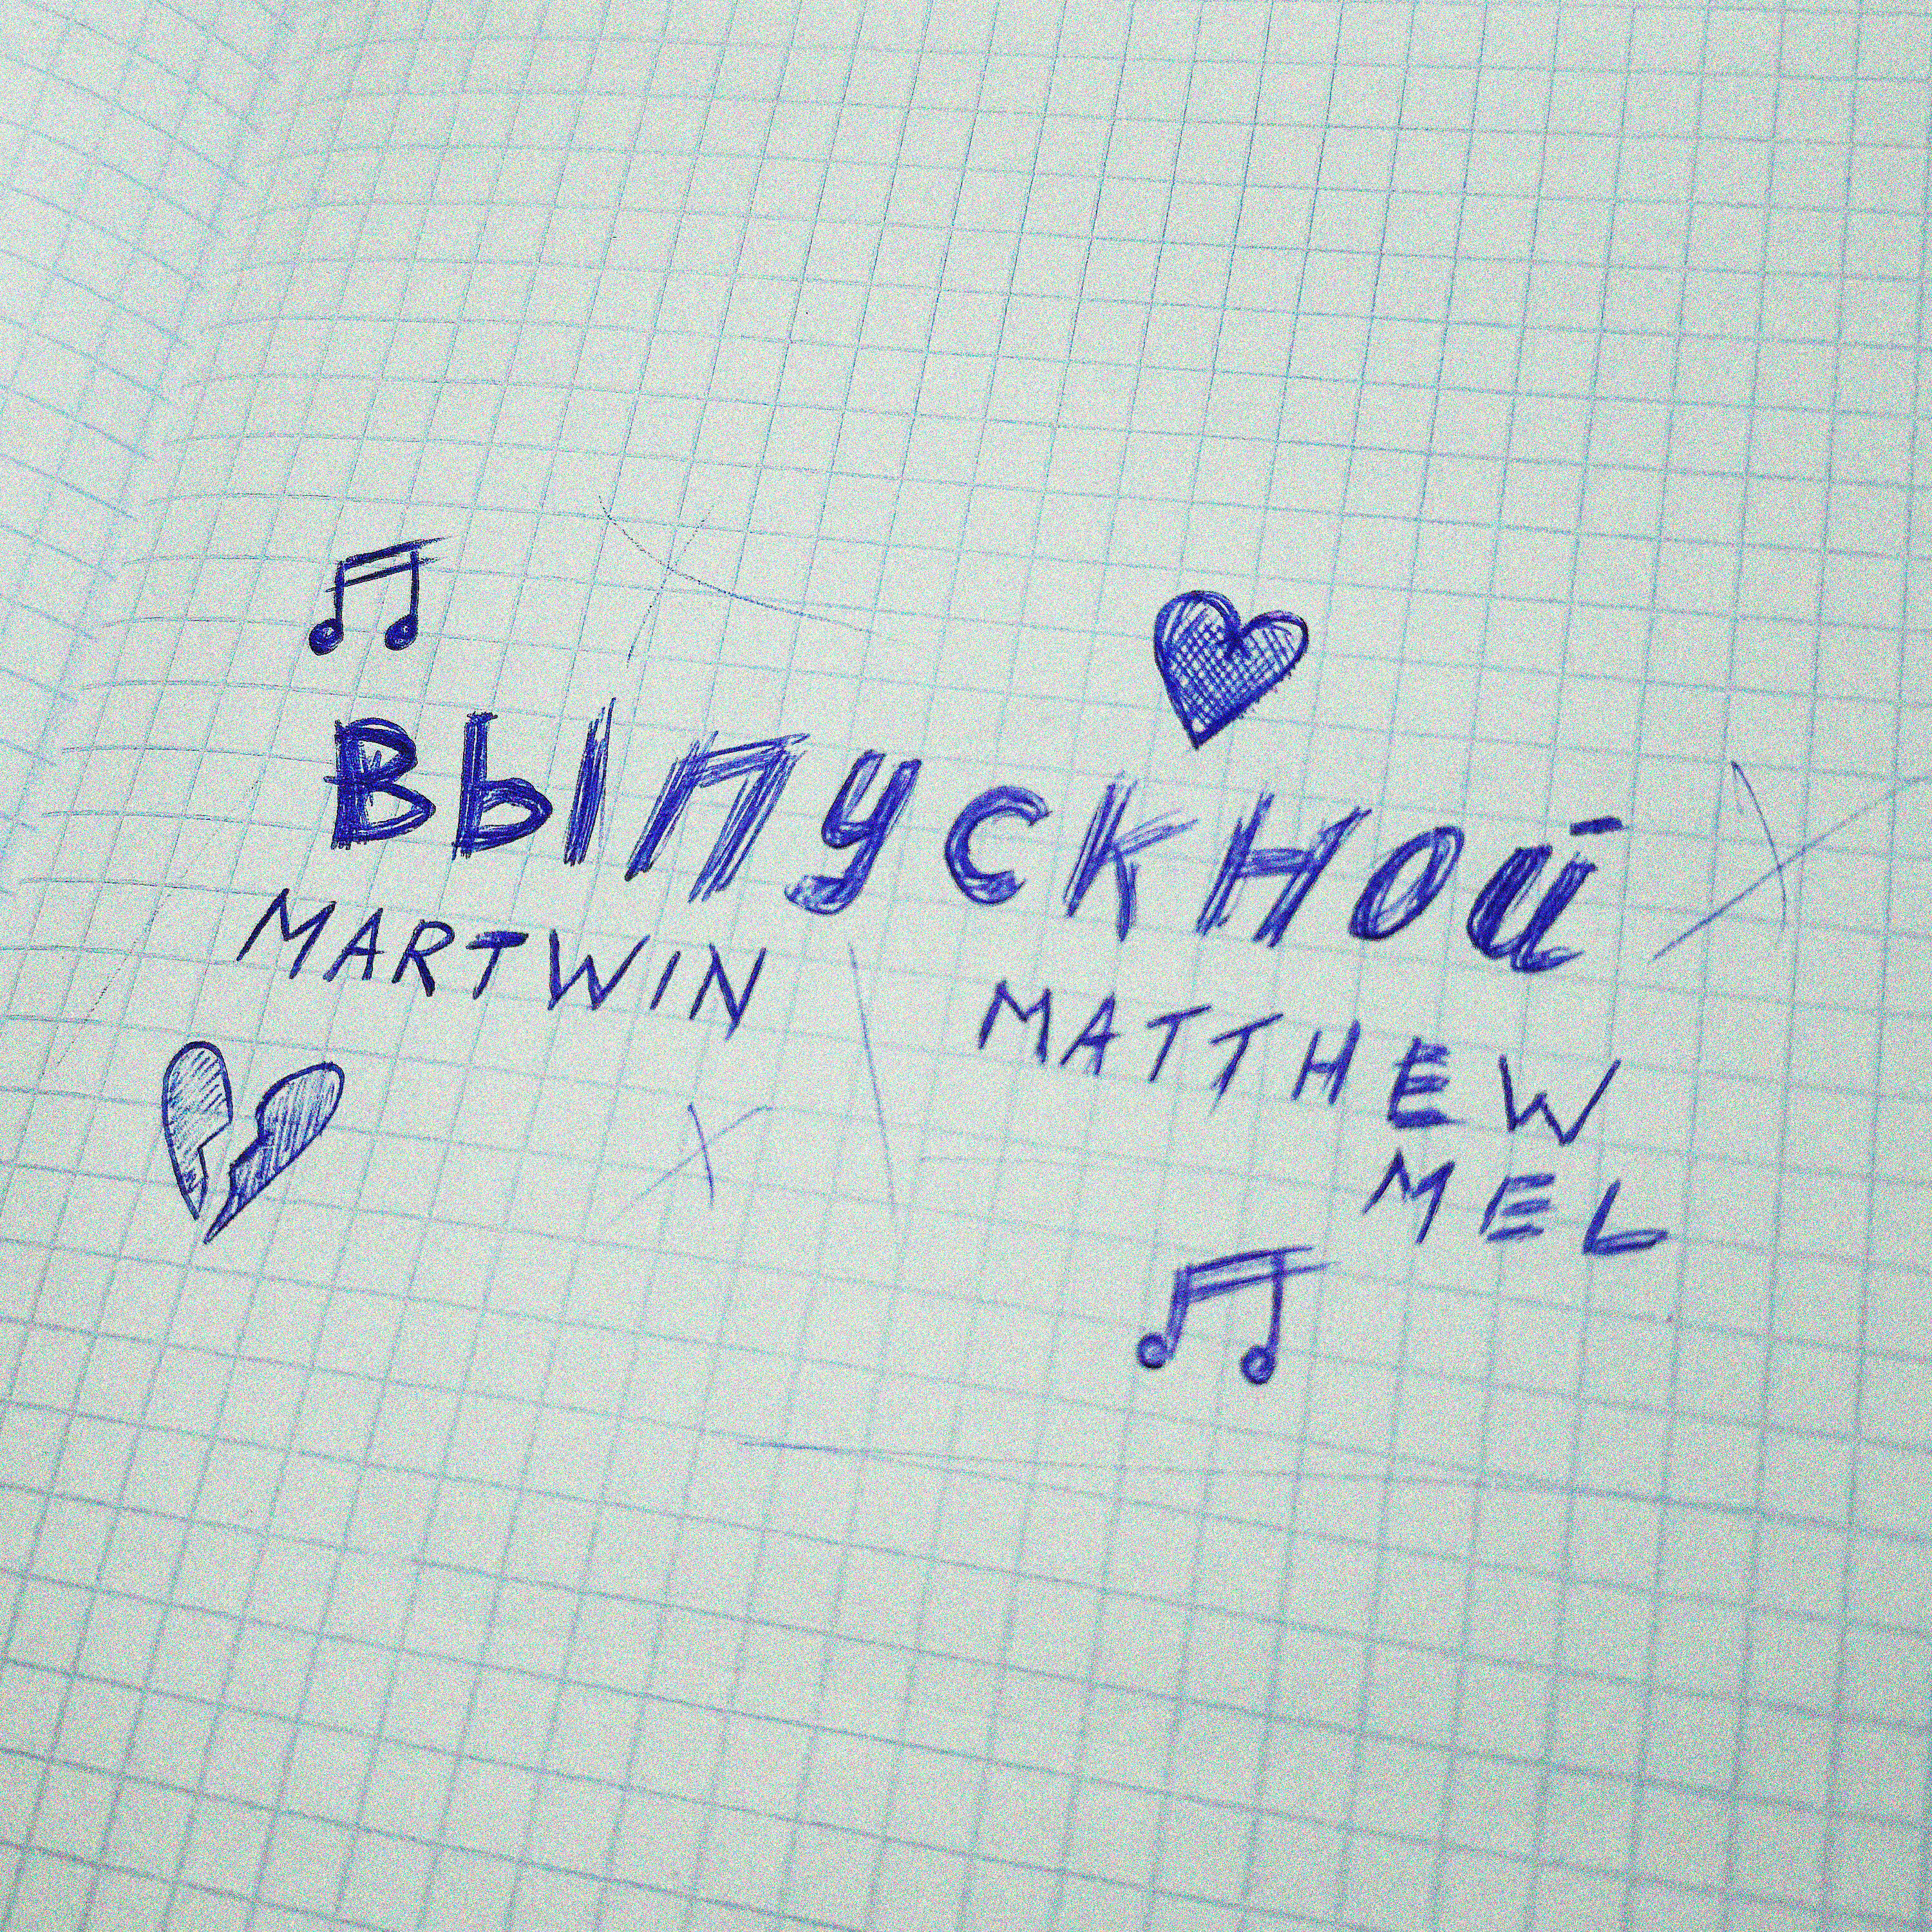 Выпускной
MARTWIN
MATTHEW
MEL